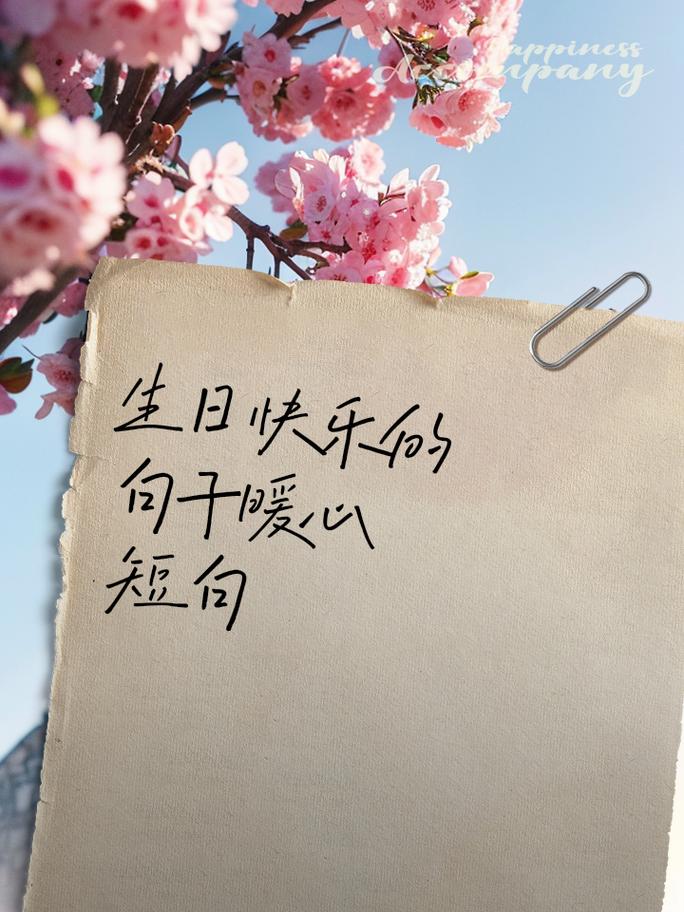 Happiness
Accompany
生日快乐的
句子暖心
短句